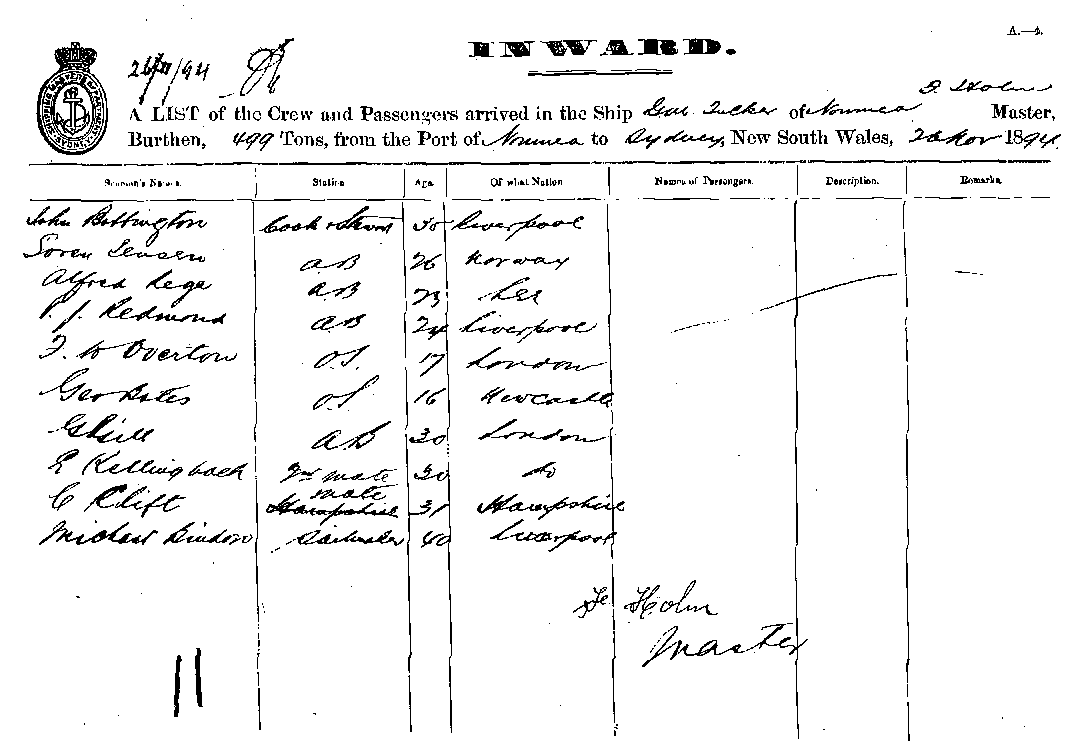 A.—4.
INWARD.
26/11/94
J. Holm
A LIST of the Crew and Passengers arrived in the Ship Gov. Tucker of Noumea Master,
Burthen, 499 Tons, from the Port of Noumea to Sydney, New South Wales, 26 Nov 1894.
Seaman's Names. Station Age. Of what Nation Names of Passengers. Description. Remarks.
John Bobbington Cook & Stewd 30 Liverpool
Soren Jensen AB 26 Norway
Alfred Lege AB 23
P. J. Redmond AB 24 Liverpool
F. W Overton OS. 17 London
Geo Bates OS 16 Newcastle
G Hill AB 30 London
E Kellingback 2nd mate 30 Do
C Clift mate Hampshire 31 Hampshire
Michael Bindon Sailmaker 40 Liverpool
Holm
Master
11